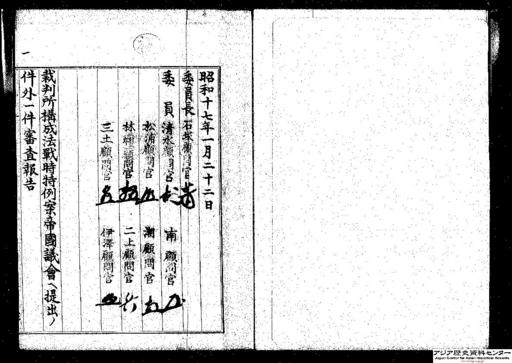 昭和十七年一月二十二日
委員長 石塚顧問官
委員 清水顧問官
南顧問官
松浦顧問官
潮顧問官
林顧問官
二上顧問官
三土顧問官
伊澤顧問官
裁判所構成法戰時特例案帝國議會ヘ提出ノ
件外一件審査報告
一
アジア歴史資料センター
Japan Center for Asian Historical Records